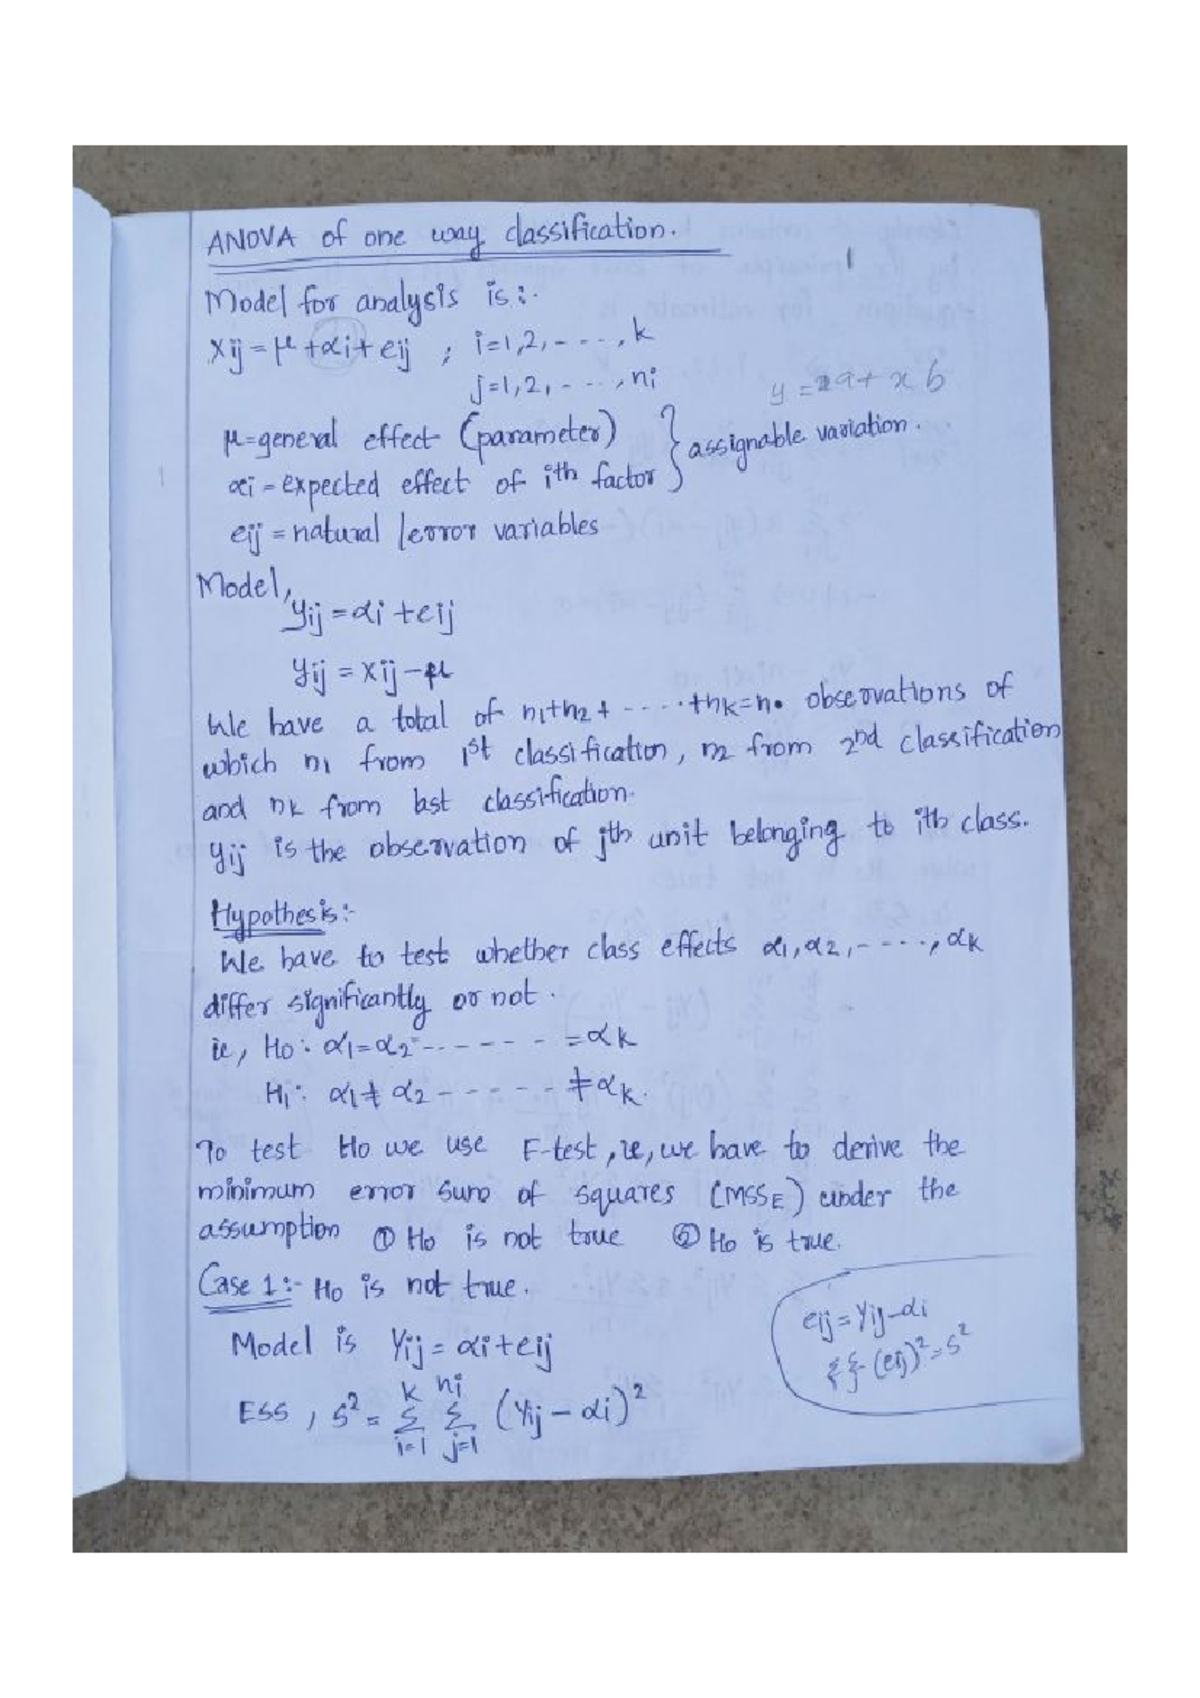 ANOVA of one way classification.
Model for analysis is:-
xij = μ + αi + eij ; i=1,2,- - - -, k
j=1,2, - - - -, ni
y = a + x b
μ = general effect (parameter) } assignable variation.
αi = expected effect of ith factor
eij = natural /error variables
Model,
yij = αi + eij
yij = xij - μ
We have a total of n1+n2+ - - - - +nk = n. observations of
which n1 from 1st classification, n2 from 2nd classification
and nk from last classification.
yij is the observation of jth unit belonging to ith class.
Hypothesis:-
We have to test whether class effects α1, α2, - - - - , αk
differ significantly or not.
ie, Ho: α1=α2 - - - - - - = αk
H1: α1 ≠ α2 - - - - - ≠ αk.
To test Ho we use F-test, ie, we have to derive the
minimum error sum of squares (MSSE) under the
assumption ① Ho is not true ② Ho is true.
Case 1:- Ho is not true.
eij = Yij - αi
Σ Σ (eij)² = s²
Model is Yij = αi + eij
ESS, s² = k Σ i=1 ni Σ j=1 (Yij - αi)²